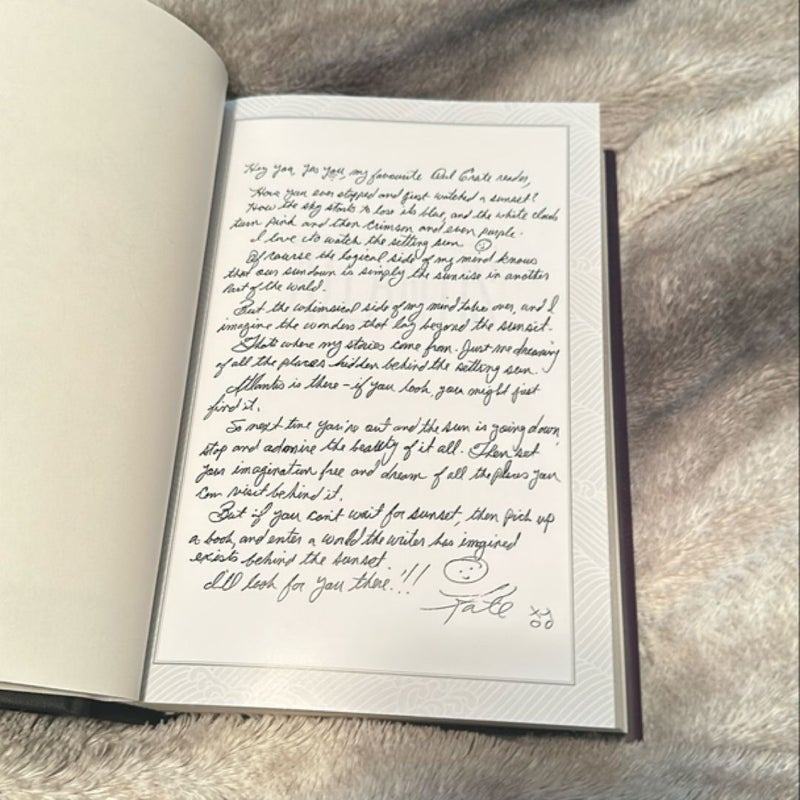 Hey you, yes you, my favourite Owl Crate reader,
Have you ever stopped and just watched a sunset?
How the sky starts to lose its blue, and the white clouds
turn pink and then crimson and even purple.
I love to watch the setting sun.
Of course the logical side of my mind knows
that our sundown is simply the sunrise in another
part of the world.
But the whimsical side of my mind takes over, and I
imagine the wonders that lay beyond the sunset.
Thats where my stories come from. Just me dreaming
of all the places hidden behind the setting sun.
Atlantis is there - if you look, you might just
find it.
So next time you're out and the sun is going down
stop and admire the beauty of it all. Then set
your imagination free and dream of all the places you
can visit behind it.
But if you can't wait for sunset, then pick up
a book, and enter a world the writer has imgined
exists behind the sunset.
I'll look for you there!!!
Kate
xx
oo